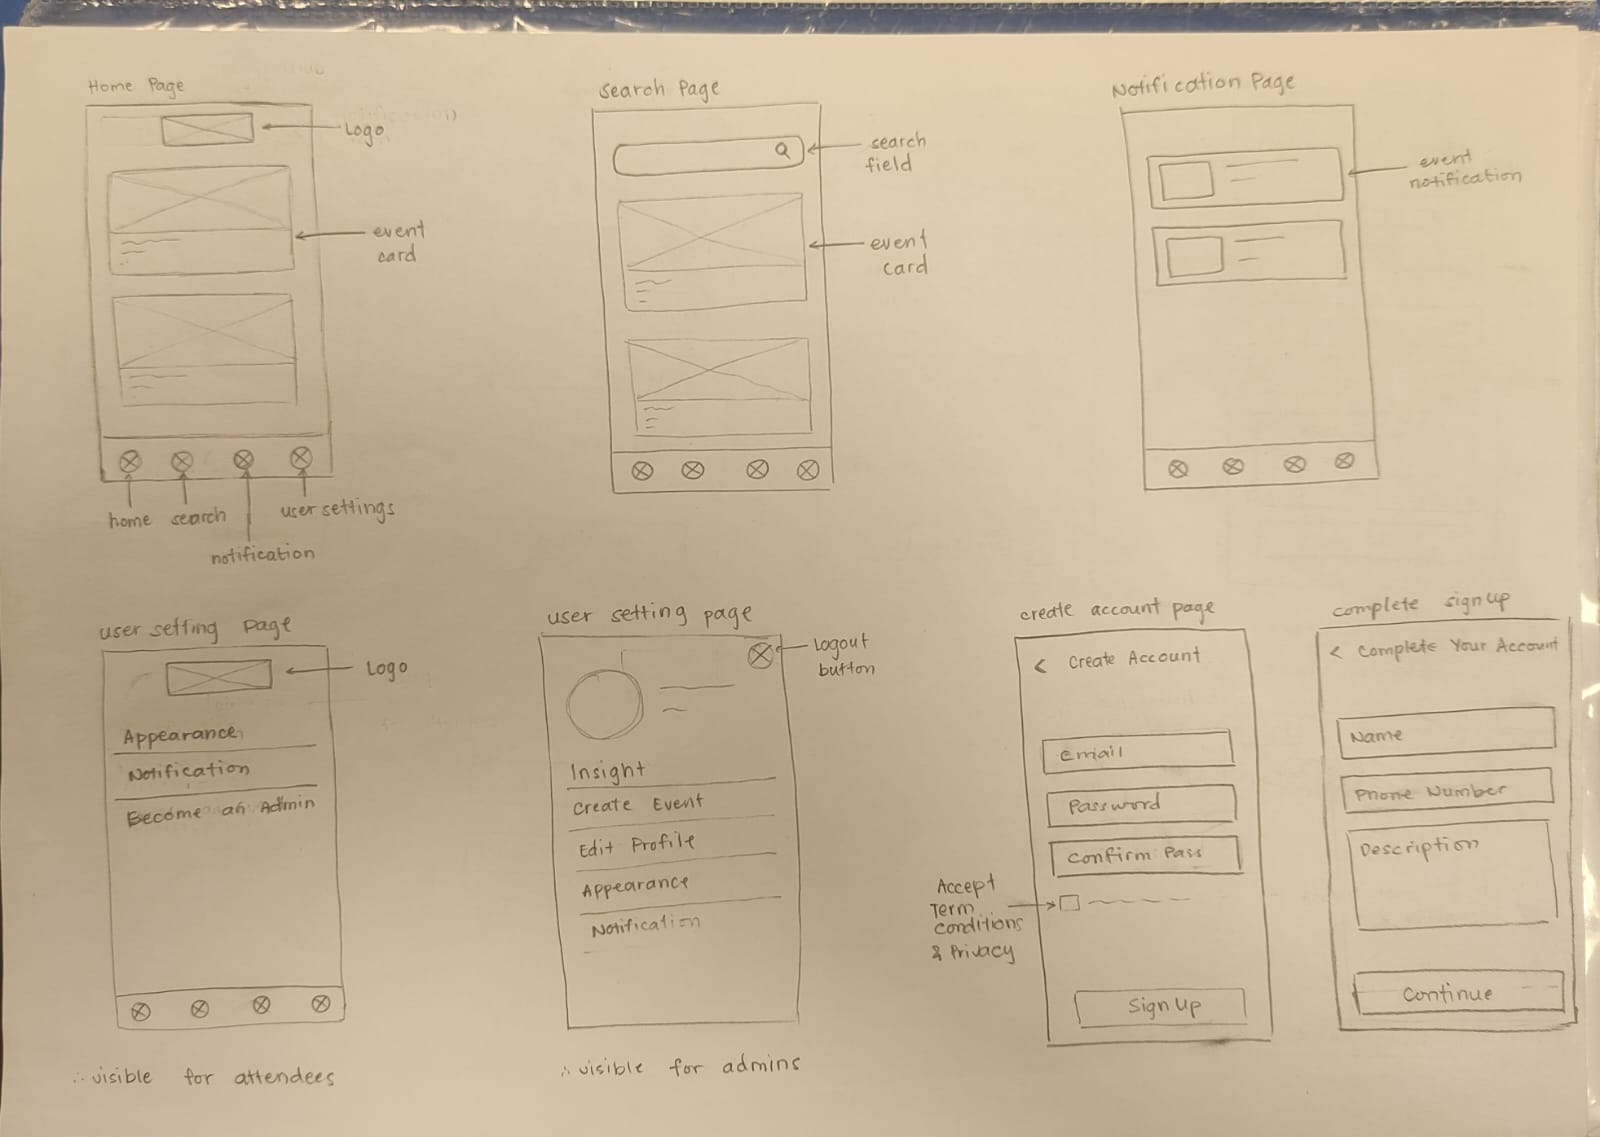 Home Page
Logo
event
card
home
search
notification
user settings
search Page
search
field
event
card
Notification Page
event
notification
user setting page
Logo
Appearance
Notification
Become an Admin
∴ visible for attendees
user setting page
Logout
button
Insight
Create Event
Edit Profile
Appearance
Notification
∴ visible for admins
create account page
< Create Account
email
Password
Confirm Pass
Accept
Term
conditions
& Privacy
Sign Up
complete sign up
< Complete Your Account
Name
Phone Number
Description
Continue